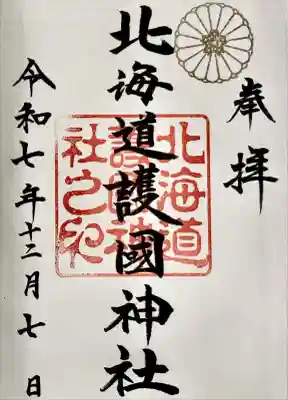 奉拝
北海道護國神社
北海道護國神社之印
令和七年十二月七日